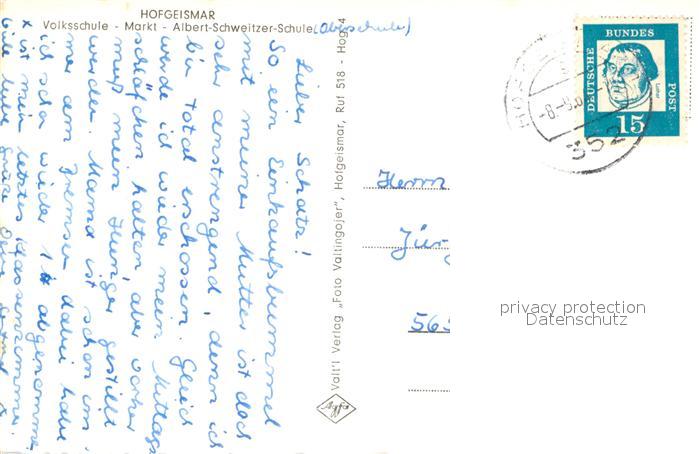 HOFGEISMAR
Volksschule - Markt - Albert-Schweitzer-Schule (Oberschule)
Lieber Schatz!
So ein Einkaufsbummel
mit meiner Mutter ist doch
sehr anstrengend, denn ich
bin total erschossen. Gleich
werde ich wieder mein Mittags
schläfchen halten, aber vorher
muß mein Hunger gestillt
werden. Mama ist schon im
mer am dabei habe
ich schon wieder abgenommen
x ist mein letztes Klassenzimmer.
Viele liebe Grüße Deine
Valt'l Verlag „Foto Valtingojer", Hofgeismar, Ruf 518 - Hog 4
Agfa
DEUTSCHE BUNDESPOST
Luther
15
-8.-9.6
352
Herrn
Jür
565
privacy protection
Datenschutz